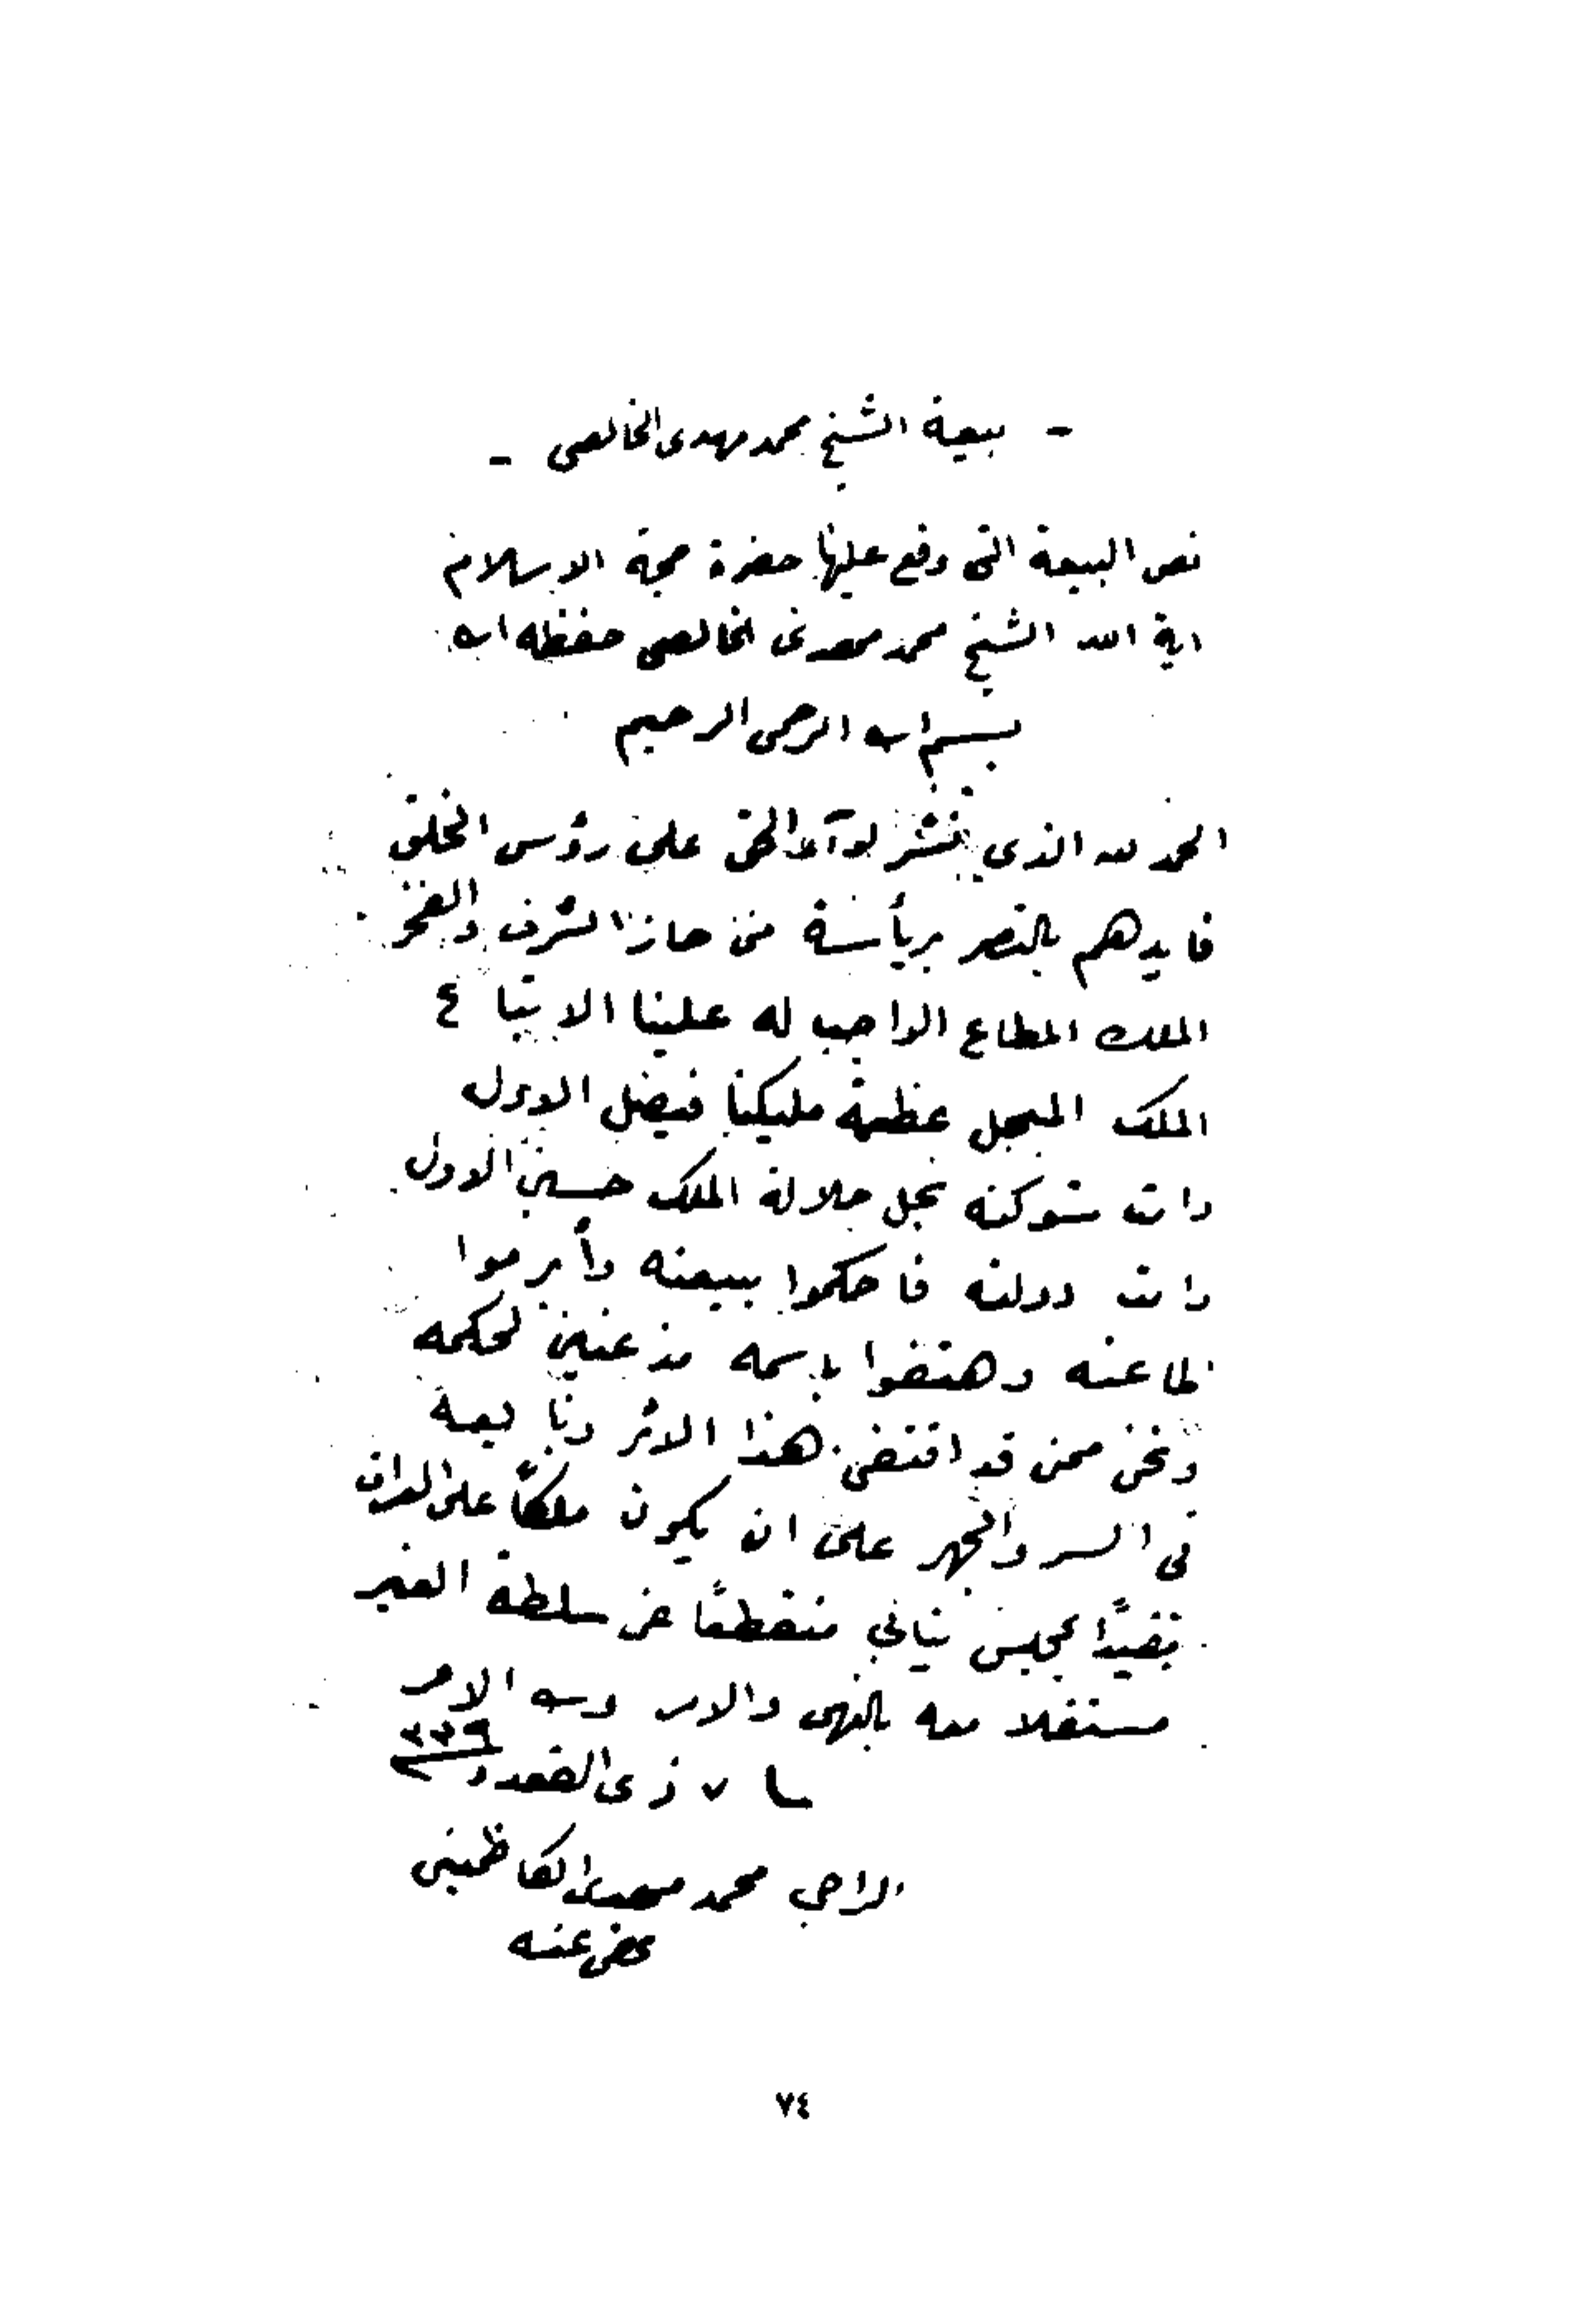 - بيعة الشيخ محمد مهدى الخالصى -
نص البيعة التى وقع عليها حضرة حجة الاسلام
اية الله الشيخ محمد مهدى الخالصى حفظه الله
بسم الله الرحمن الرحيم
الحمد لله الذى نشر لوآء الحق على رؤس الخلق
فايدهم بالنصر برأسة من حاز الشرف والفخر
الملك المطاع الواجب له علينا الاتباع
الملك المبجل عظمة مليكنا فيصل الاول
دامت شوكته نجل جلالة الملك حسين الاول
دامت دولته فاحكموا بيعته وأبرموا
طاعته وهتفوا باسمه مذعنين لحكمه
ونحن ممن قد اقتفى هذا الاثر وبايعه
فى السر والجهر على ان يكون ملكاً على العراق
مقيداً بمجلس نيابي منقطعاً عن سلطة الغير
مستقلا معه بالنهى والامر ولله الامر
٧ ذى القعدة
الراجي محمد مهدى الكاظمينى
عفى عنه
٧٤